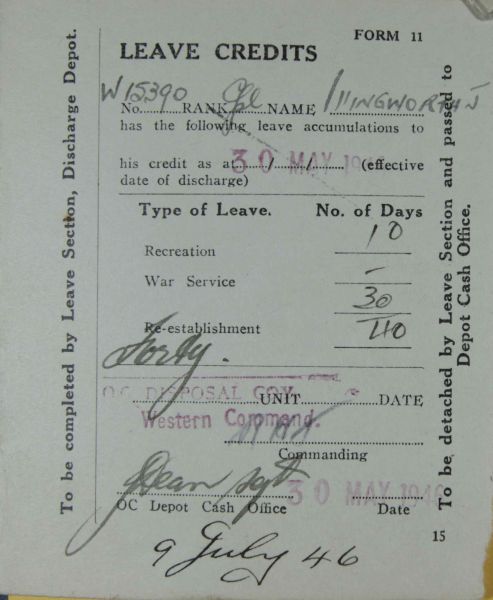 FORM 11
LEAVE CREDITS
W15390 Cpl ILLINGWORTH J
No. RANK NAME
has the following leave accumulations to
his credit as at / / (effective
30 MAY 194
date of discharge)
Type of Leave. No. of Days
Recreation 10
War Service -
Re-establishment 30
40
Forty.
OC DISPOSAL COY
UNIT DATE
Western Command.
Commanding
Dean Sgt 30 MAY 194
OC Depot Cash Office Date
15
9 July 46
To be completed by Leave Section, Discharge Depot.
To be detached by Leave Section and passed to
Depot Cash Office.